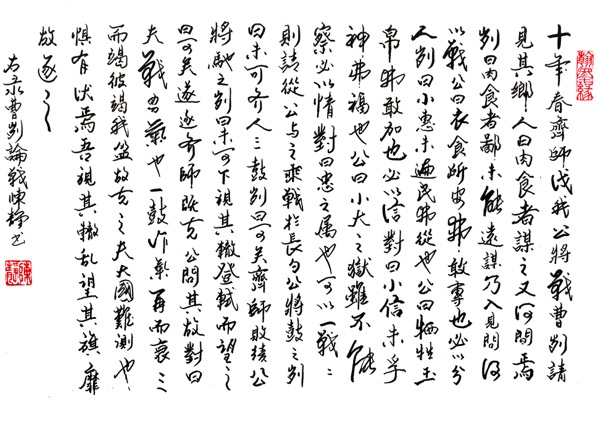 十年春齊師伐我公將戰曹刿請
見其鄉人曰肉食者謀之又何間焉
刿曰肉食者鄙未能遠謀乃入見問何
以戰公曰衣食所安弗敢專也必以分
人刿曰小惠未遍民弗從也公曰牺牲玉
帛弗敢加也必以信對曰小信未孚
神弗福也公曰小大之獄雖不能
察必以情對曰忠之属也可以一戰〻
則請從公与之乘戰於長勺公將鼓之刿
曰未可齊人三鼓刿曰可矣齊師敗績公
將馳之刿曰未可下視其轍登軾而望之
曰可矣遂逐齊師既克公問其故對曰
夫戰勇氣也一鼓作氣再而衰三
而竭彼竭我盈故克之夫大國難測也
懼有伏焉吾視其轍乱望其旗靡
故逐之
右录曹刿論戰陳书